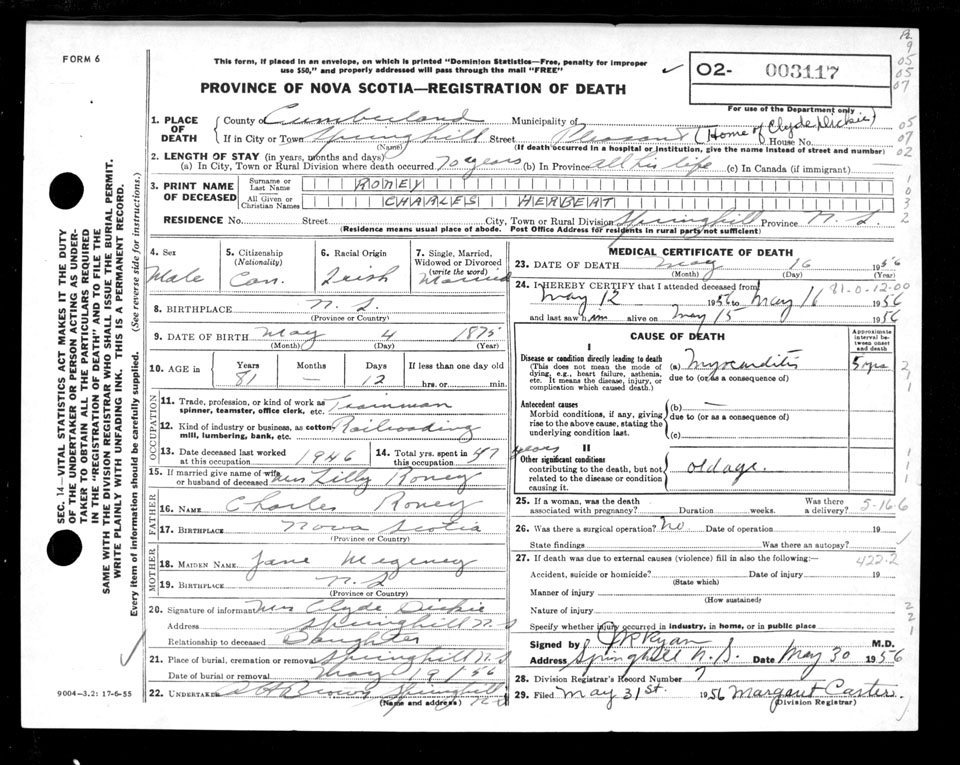 FORM 6
This form, if placed in an envelope, on which is printed "Dominion Statistics—Free, penalty for improper
use $50," and properly addressed will pass through the mail "FREE"
✓ 02- 003117
PROVINCE OF NOVA SCOTIA—REGISTRATION OF DEATH
For use of the Department only
1. PLACE OF DEATH
County of Cumberland Municipality of
If in City or Town Springhill Street Pleasant (Home of Clyde Dickie) House No.
(Name) (If death occurred in a hospital or institution, give the name instead of street and number)
2. LENGTH OF STAY (in years, months and days)
(a) In City, Town or Rural Division where death occurred 70 years (b) In Province all his life (c) In Canada (if immigrant)
3. PRINT NAME OF DECEASED
Surname or Last Name RONEY
All Given or Christian Names CHARLES HERBERT
RESIDENCE No. Street City, Town or Rural Division Springhill Province N.S
(Residence means usual place of abode. Post Office Address for residents in rural parts not sufficient)
4. Sex Male
5. Citizenship (Nationality) Can.
6. Racial Origin Irish
7. Single, Married, Widowed or Divorced (write the word) Married
8. BIRTHPLACE N.S.
(Province or Country)
9. DATE OF BIRTH May 4 1875
(Month) (Day) (Year)
10. AGE in Years Months Days If less than one day old
81 — 12 hrs. or min.
OCCUPATION
11. Trade, profession, or kind of work as spinner, teamster, office clerk, etc. Trainman
12. Kind of industry or business, as cotton mill, lumbering, bank, etc. Railroading
13. Date deceased last worked at this occupation 1946
14. Total yrs. spent in this occupation 47 years
15. If married give name of wife or husband of deceased Mrs Lilly Roney
FATHER
16. NAME Charles Roney
17. BIRTHPLACE Nova Scotia
(Province or Country)
MOTHER
18. MAIDEN NAME Jane Megeney
19. BIRTHPLACE N.S
(Province or Country)
20. Signature of informant Mrs Clyde Dickie
Address Springhill N.S
Relationship to deceased Daughter
21. Place of burial, cremation or removal Springhill N.S
Date of burial or removal May 19/56
22. UNDERTAKER Brown Springhill N.S
(Name and address)
MEDICAL CERTIFICATE OF DEATH
23. DATE OF DEATH May 16 1956
(Month) (Day) (Year)
24. I HEREBY CERTIFY that I attended deceased from 81-0-12-00
May 12 1956 to May 16 1956
and last saw him alive on May 15 1956
CAUSE OF DEATH
Approximate interval between onset and death
I
Disease or condition directly leading to death
(This does not mean the mode of dying, e.g., heart failure, asthenia, etc. It means the disease, injury, or complication which caused death.)
(a) Myocarditis 5 yrs
due to (or as a consequence of)
Antecedent causes
Morbid conditions, if any, giving rise to the above cause, stating the underlying condition last.
(b) —
due to (or as a consequence of)
(c)
II
Other significant conditions
contributing to the death, but not related to the disease or condition causing it.
old age.
25. If a woman, was the death associated with pregnancy? Duration weeks. Was there a delivery? 5-16-6
26. Was there a surgical operation? No Date of operation 19
State findings Was there an autopsy?
27. If death was due to external causes (violence) fill in also the following:— 422.2
Accident, suicide or homicide? Date of injury 19
(State which)
Manner of injury
(How sustained)
Nature of injury
Specify whether injury occurred in industry, in home, or in public place
Signed by Ryan M.D.
Address Springhill N.S. Date May 30 1956
28. Division Registrar's Record Number 7
29. Filed May 31st. 1956 Margaret Carter
(Division Registrar)
SEC. 14—VITAL STATISTICS ACT MAKES IT THE DUTY
OF THE UNDERTAKER OR PERSON ACTING AS UNDER-
TAKER TO OBTAIN ALL THE PARTICULARS REQUIRED
IN THE "REGISTRATION OF DEATH" AND TO FILE THE
SAME WITH THE DIVISION REGISTRAR WHO SHALL ISSUE THE BURIAL PERMIT.
WRITE PLAINLY WITH UNFADING INK. THIS IS A PERMANENT RECORD.
Every item of information should be carefully supplied. (See reverse side for instructions.)
9004—3.2: 17-6-55